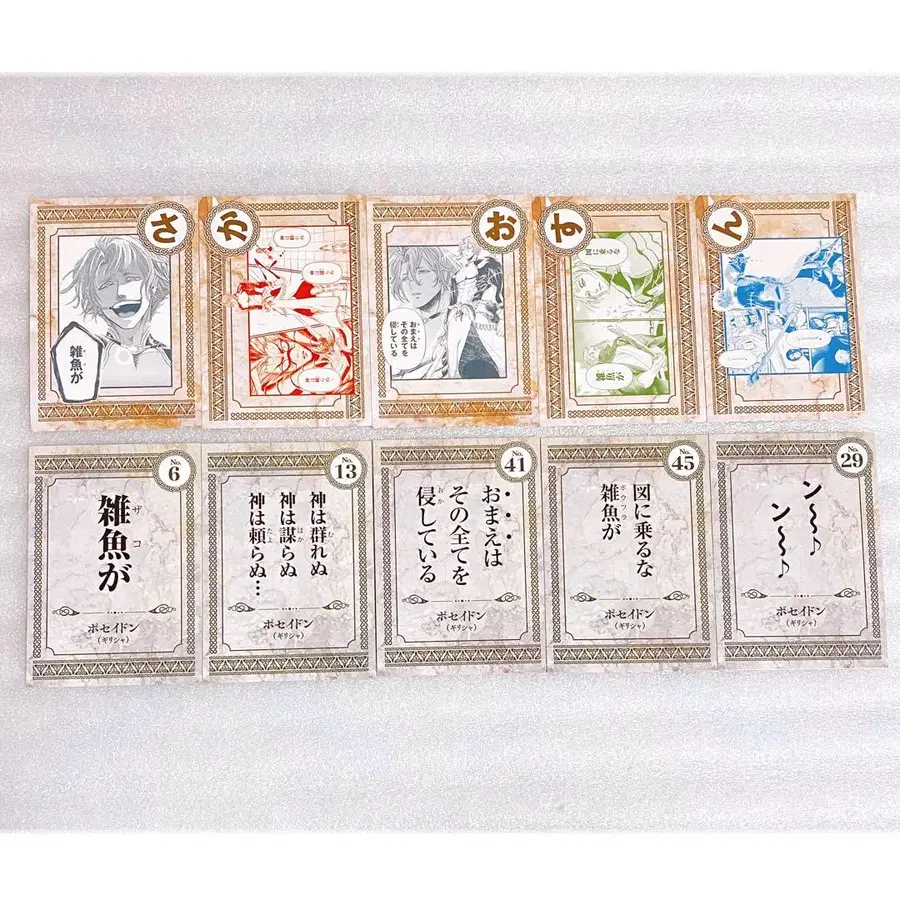 さ
雑魚が
か
お
おまえは
その全てを
侵している
す
図に乗るな
雑魚が
ん
No.
6
雑魚が
ザコ
ポセイドン
(ギリシャ)
No.
13
神は群れぬ
む
神は謀らぬ
はか
神は頼らぬ…
たよ
ポセイドン
(ギリシャ)
No.
41
おまえは
その全てを
侵している
おか
ポセイドン
(ギリシャ)
No.
45
図に乗るな
雑魚が
ボウフラ
ポセイドン
(ギリシャ)
No.
29
ン〜〜♪
ン〜〜♪
ポセイドン
(ギリシャ)